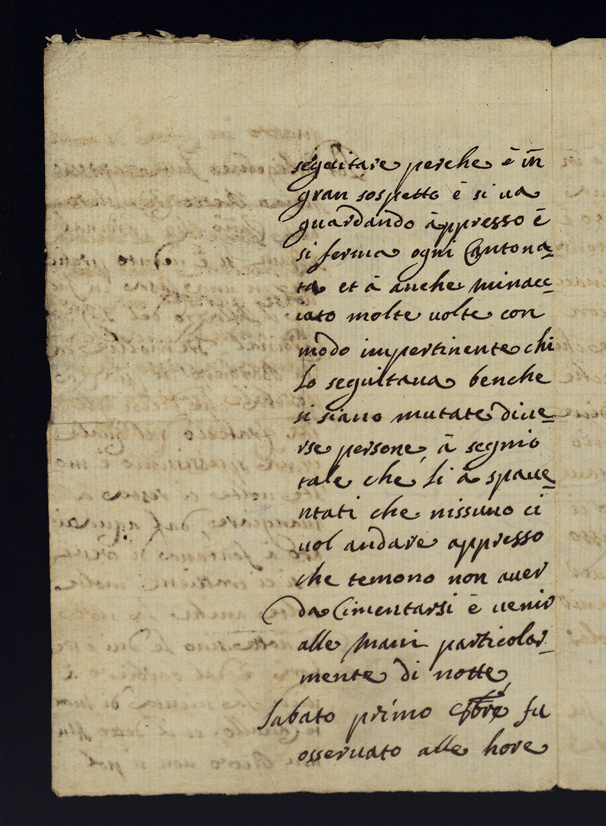 seguitare perche è in
gran sospetto è si ua
guardando àppresso è
si ferma ogni Cantona-
ta et à anche minac-
iato molte uolte con
modo impertinente chi
Lo seguitaua benche
si siano mutate diue-
rse persone, à segnio
tale che li à spaue-
ntati che nissuno ci
uol andare appresso
che temono non auer
da Cimentarsi è uenir
alle Mani particolar-
mente di notte,
Sabato primo fu
osseruato alle hore